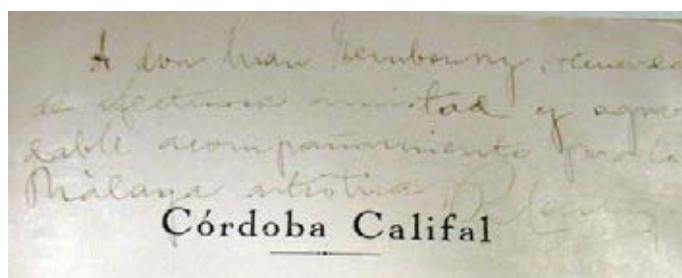 A don Juan Temboury, recuerdo
de afectuosa amistad y agra-
dable acompañamiento por la
Málaga artística.
Córdoba Califal